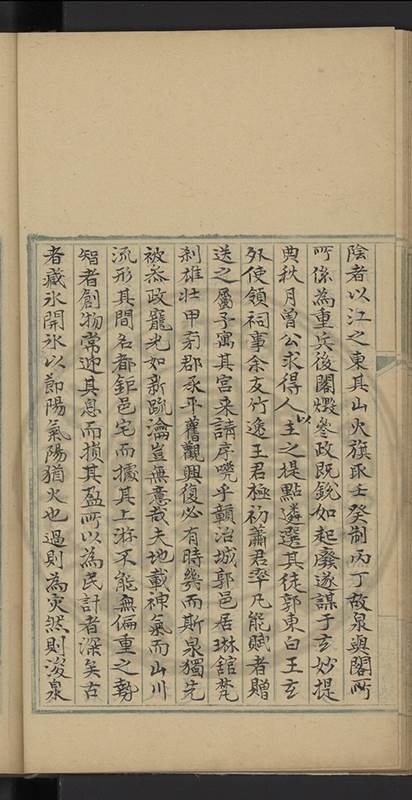 陰者以江之東其山火旗取壬癸制丙丁故泉與閣所
所係為重兵後閣燬叅政既銳如起廢遂謀于玄妙提
典秋月曾公求得人以主之提點遴選其徒郭東白王玄
外使領祠事余友竹逸王君極初蕭君率凡能賦者贈
送之屬予寓其宮来請序嘵乎贛治城郭邑居琳舘梵
刹雄壯甲旁郡承平舊觀興復必有時幾而斯泉獨先
被叅政寵光如新疏瀹豈無意哉夫地載神氣而山川
流形其間名都鉅邑宅而據其上游不能無偏重之勢
智者創物常迎其息而損其盈所以為民計者深矣古
者藏氷開氷以節陽氣陽猶火也過則為灾然則浚泉